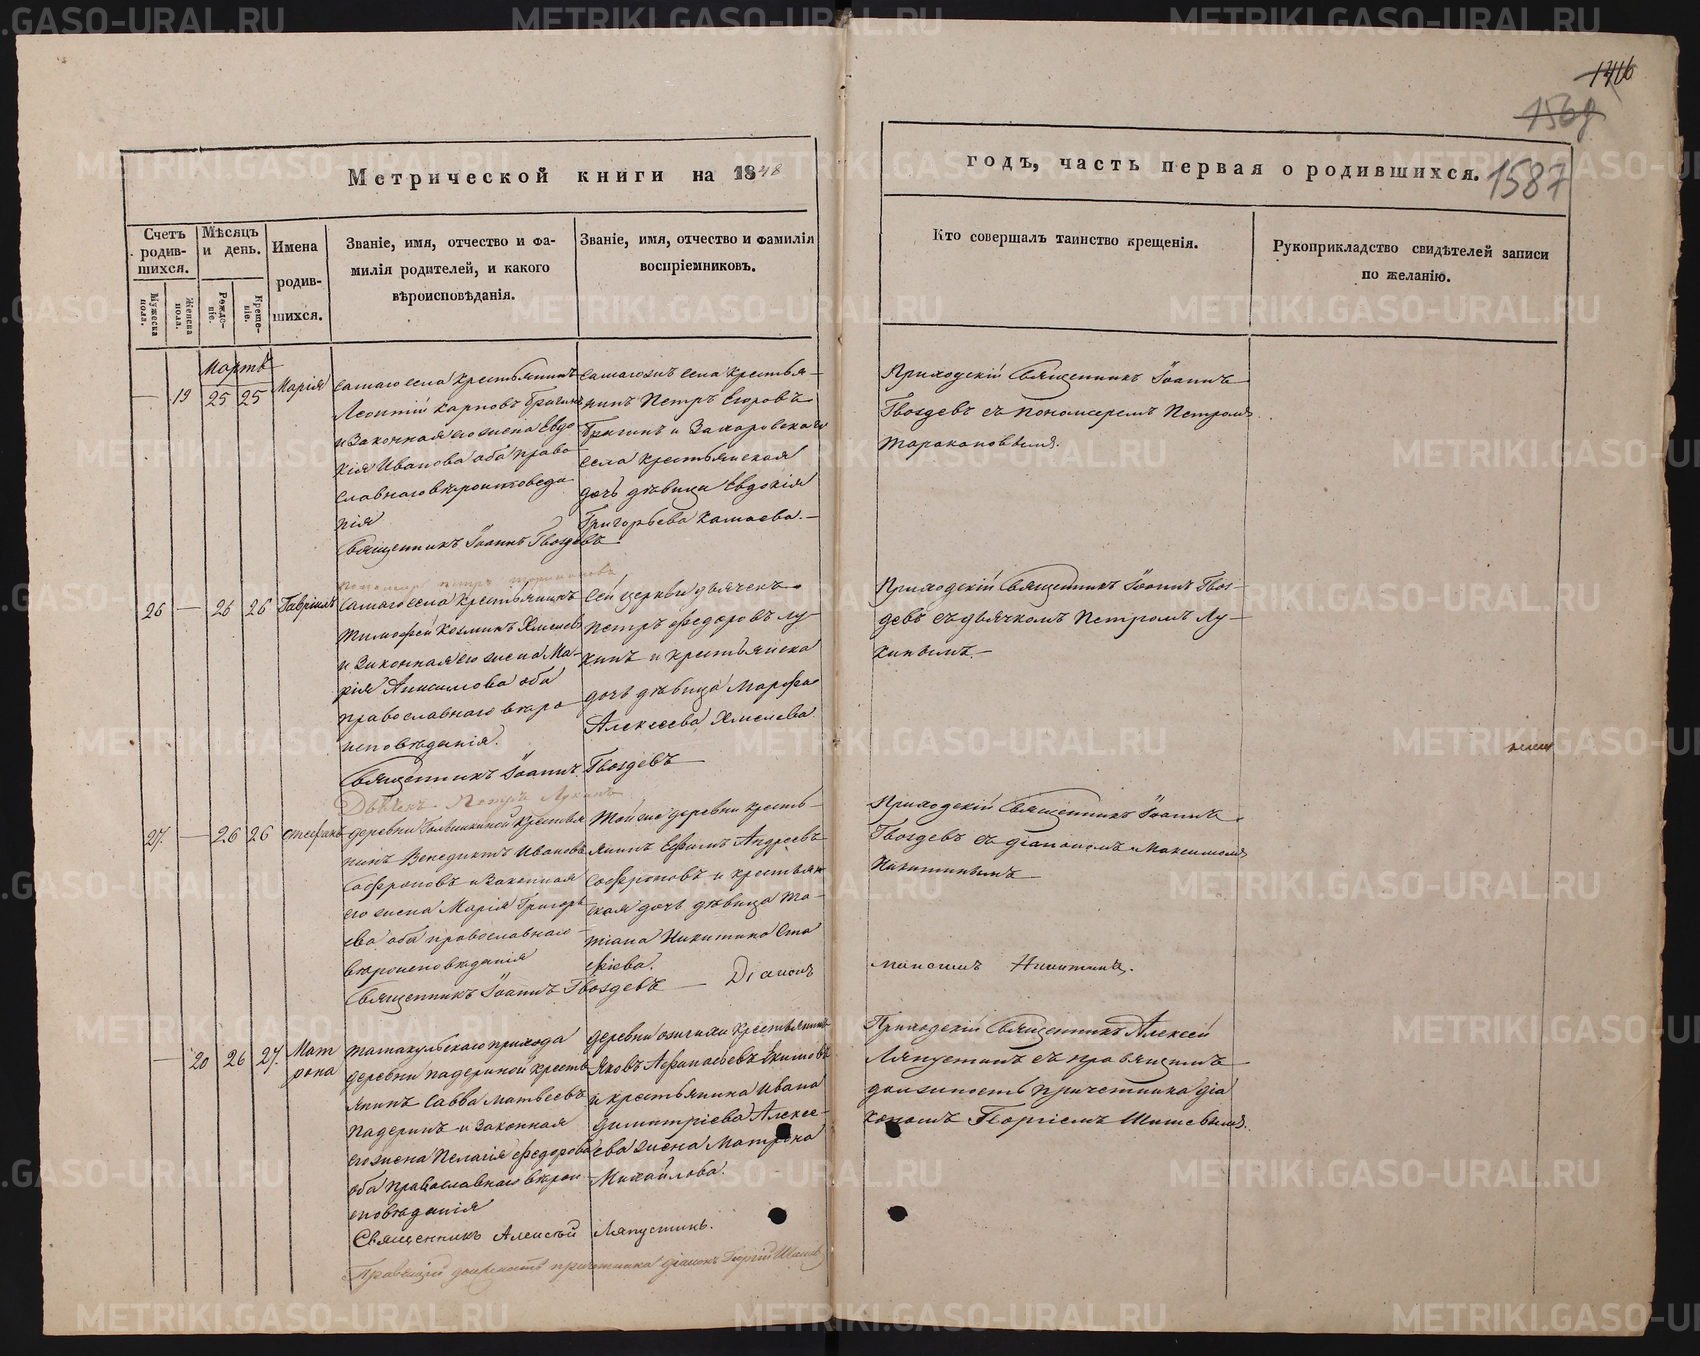 1416
1568
1587
Метрической книги на 1848
годъ, часть первая о родившихся.
Счетъ родив-шихся.
Мѣсяцъ и день.
Имена родив-шихся.
Званіе, имя, отчество и фа-
милія родителей, и какого
вѣроисповѣданія.
Званіе, имя, отчество и фамилія
воспріемниковъ.
Кто совершалъ таинство крещенія.
Рукоприкладство свидѣтелей записи
по желанію.
Мужеска пола.
Женска пола.
Рожде-ніе.
Креще-ніе.
Мартъ
— 19 25 25 Марія
самаго села крестьянинъ
Леонтій Карповъ Брагинъ
и законная его жена Евдо
кія Иванова оба право
славнаго вѣроисповеда
нія
Священникъ Іоаннъ Гвоздевъ
пономарь Петръ Таракановъ
самагожъ села крестья-
нинъ Петръ Егоровъ
Брагинъ и Захаровскаго
села крестьянская
дочь дѣвица Евдокія
Григорьева Камаева.—
Приходскій Священникъ Іоаннъ
Гвоздевъ съ пономаремъ Петромъ
Таракановымъ.
26 — 26 26 Гавріилъ
самаго села крестьянинъ
Тимофей Козминъ Хмелевъ
и законная его жена Ма-
рія Анисимова оба
православнаго вѣро
исповѣданія.
Священникъ Іоаннъ Гвоздевъ —
Дьячекъ Петръ Лукинъ
Сей церкви дьячекъ
Петръ Федоровъ Лу-
кинъ и крестьянска
дочь дѣвица Марфа
Алексеева Хмелева.
Приходскій Священникъ Іоаннъ Гвоз-
девъ съ дьячкомъ Петромъ Лу-
кинымъ.—
27. — 26 26 Стефанъ
деревни крестья
нинъ Венедиктъ Ивановъ
Софроновъ и законная
его жена Марія Григорь
ева оба православнаго
вѣроисповѣданія
Священникъ Іоаннъ Гвоздевъ — Діаконъ
Максимъ Никитинъ.
Той же деревни кресть-
янинъ Ефимъ Андреевъ
Софроновъ и крестьян
ская дочь дѣвица Та-
тіана Никитина Ста
фіева.
Приходскій Священникъ Іоаннъ
Гвоздевъ съ діакономъ Максимомъ
Никитинымъ —
— 20 26 27. Мат
рона
Татакульскаго прихода
деревни Падериной кресть
янинъ Савва Матвеевъ
Падеринъ и законная
его жена Пелагія Федорова
оба православнаго вѣрои
сповѣданія
Священникъ Алексѣй Ляпустинъ.
Правящій должность причетника діаконъ Георгій Шишевъ
деревни крестьянинъ
Яковъ Афанасьевъ Якимовъ
и крестьянина Ивана
Димитріева Алексе-
ева жена Матрона
Михайлова.
Приходскій Священникъ Алексей
Ляпустинъ съ правящимъ
должность причетника діа
кономъ Георгіемъ Шишевымъ.